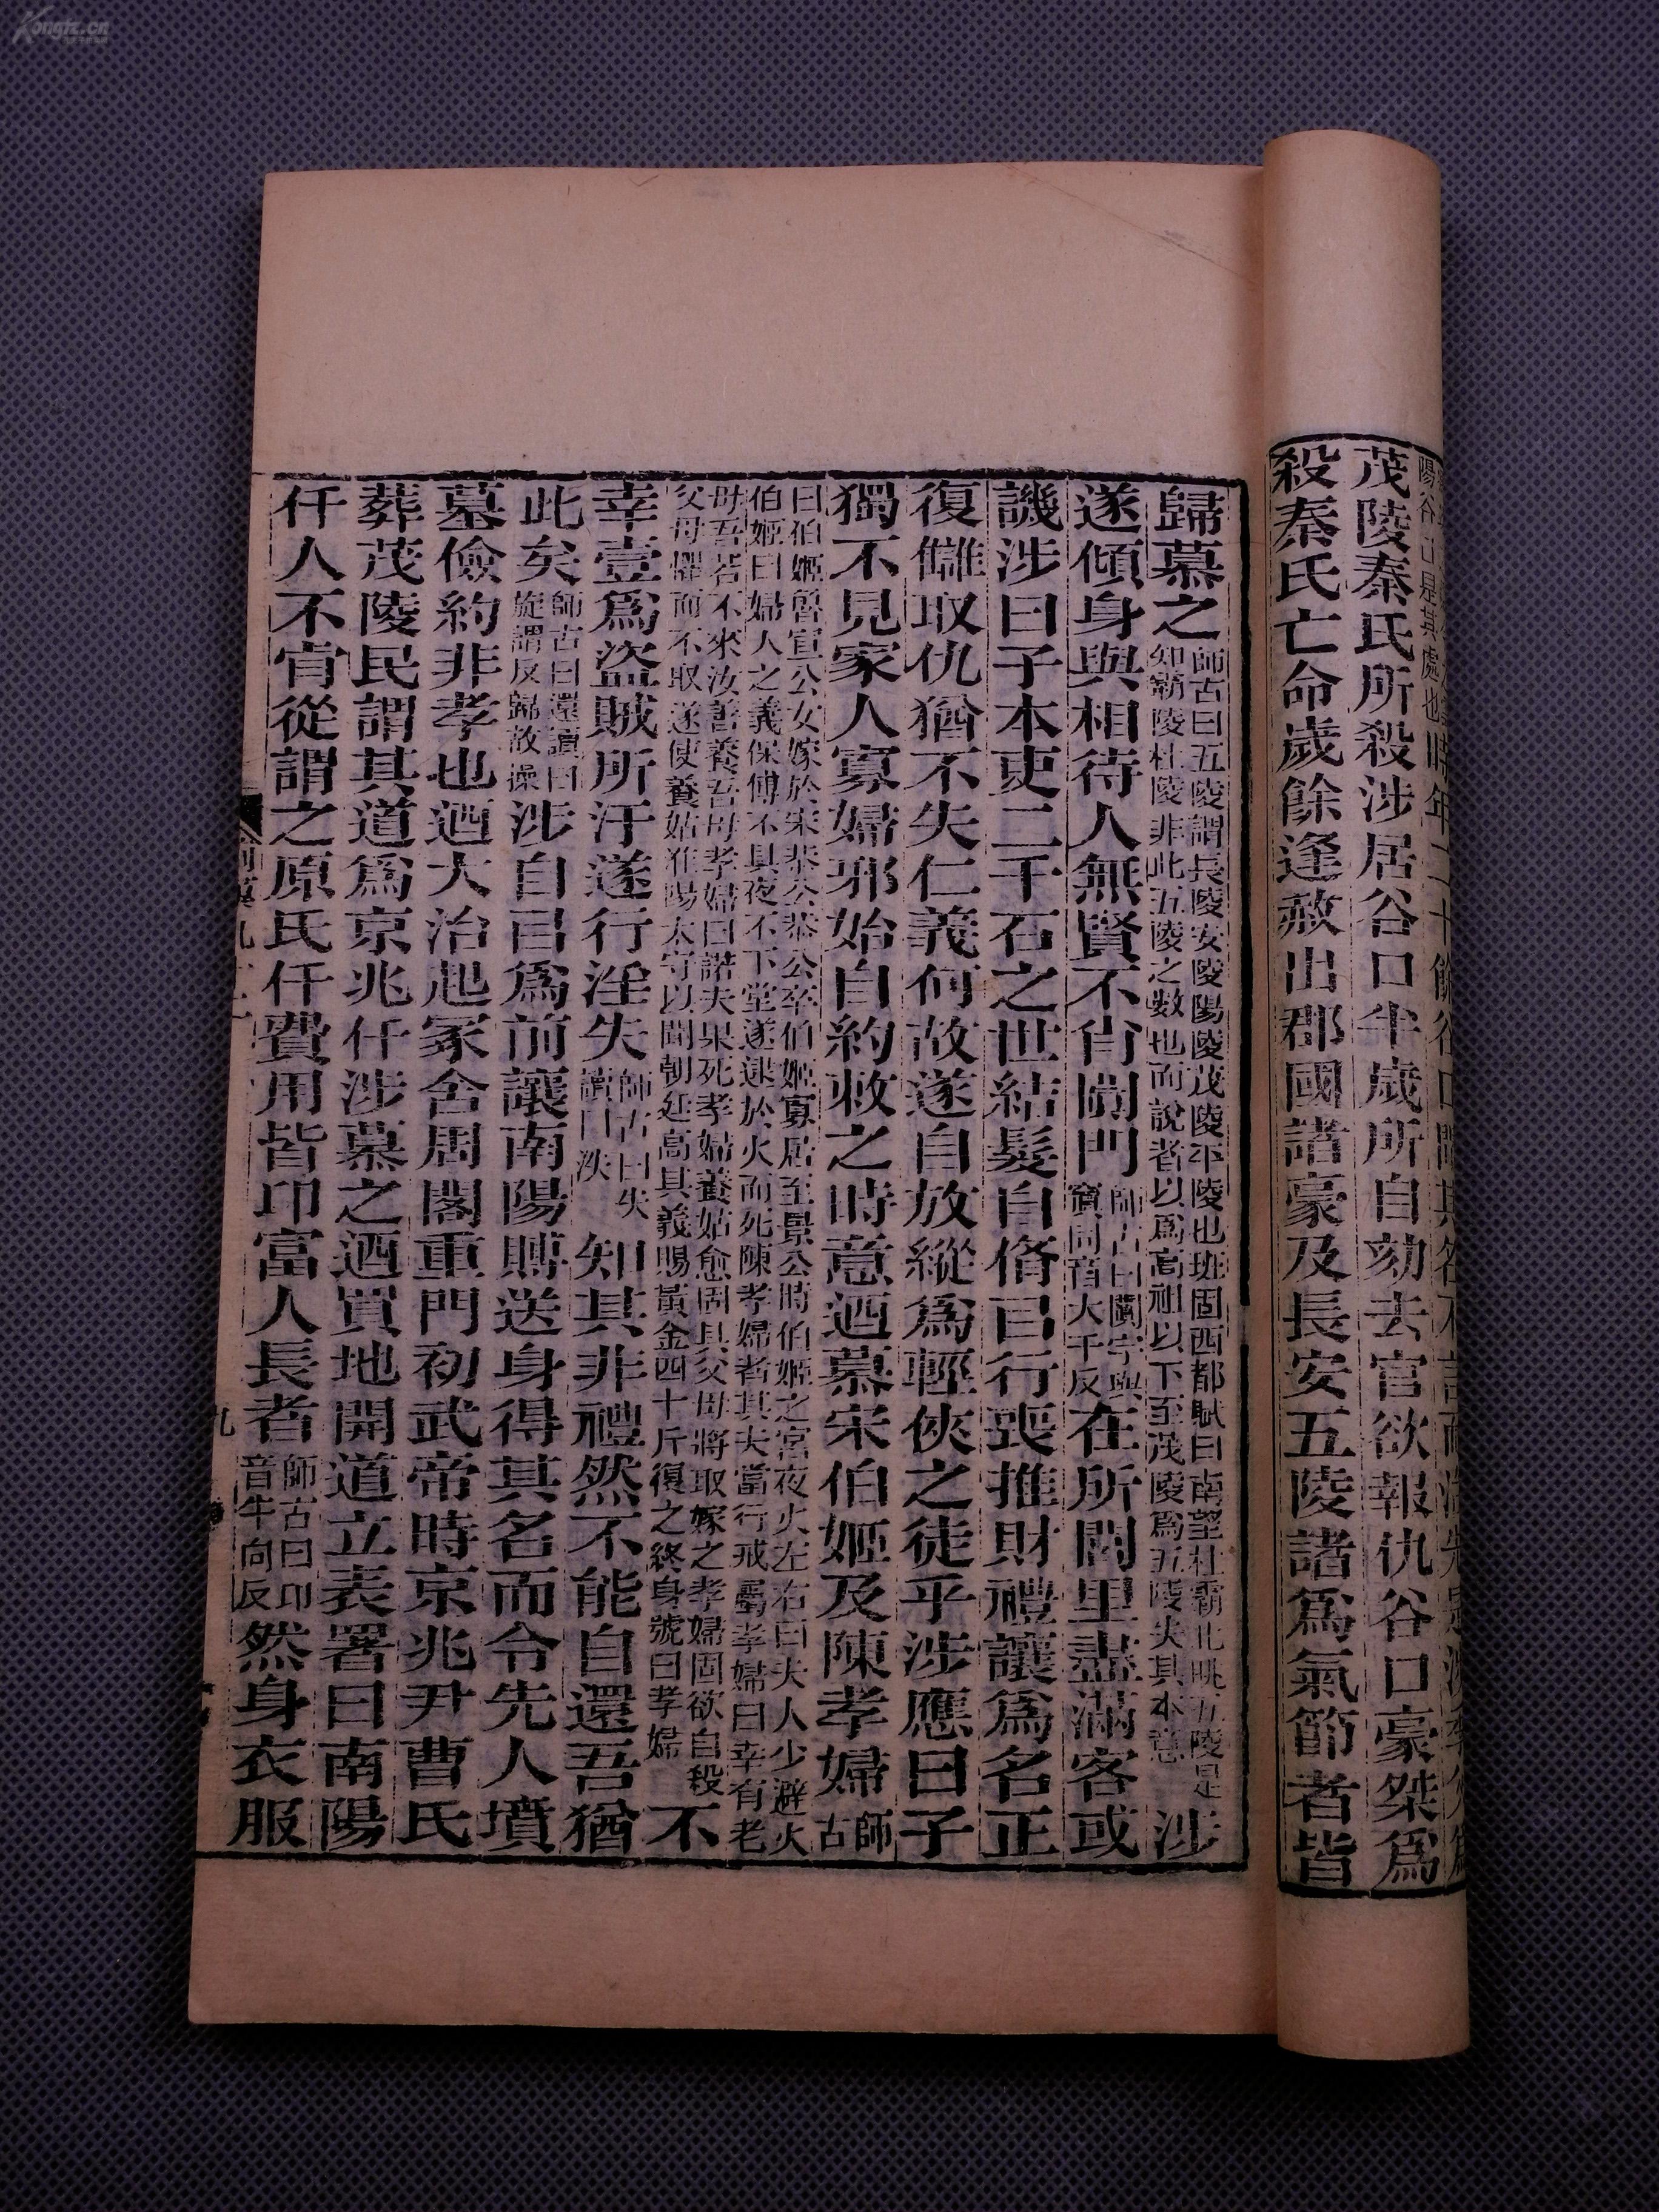 茂陵秦氏所殺涉居谷口半歲所自劾去官欲報仇谷口豪桀爲
殺秦氏亡命歲餘逢赦出郡國諸豪及長安五陵諸爲氣節者皆
歸慕之師古曰五陵謂長陵安陵陽陵茂陵平陵也班固西都賦曰南望杜霸北眺五陵是知霸陵杜陵非此五陵之數也而說者以爲高祖以下至茂陵爲五陵失其本意涉
遂傾身與相待人無賢不肖闐門師古曰闐字與窴同音大千反在所閭里盡滿客或
譏涉曰子本吏二千石之世結髮自脩㠯行喪推財禮讓爲名正
復讎取仇猶不失仁義何故遂自放縱爲輕俠之徒乎涉應曰子
獨不見家人寡婦邪始自約敕之時意迺慕宋伯姬及陳孝婦師古
曰伯姬魯宣公女嫁於宋恭公恭公卒伯姬寡居至景公時伯姬之宮夜火左右曰夫人少避火
伯姬曰婦人之義保傅不具夜不下堂遂逮於火而死陳孝婦者其夫當行戒屬孝婦曰幸有老
母吾若不來汝善養吾母孝婦曰諾夫果死孝婦養姑愈固其父母將取嫁之孝婦固欲自殺
父母懼而不取遂使養姑淮陽太守以聞朝廷高其義賜黃金四十斤復之終身號曰孝婦不
幸壹爲盜賊所汙遂行淫失師古曰失讀曰泆知其非禮然不能自還吾猶
此矣師古曰還讀曰旋謂反歸故操涉自㠯爲前讓南陽賻送身得其名而令先人墳
墓儉約非孝也迺大治起冢舍周閣重門初武帝時京兆尹曹氏
葬茂陵民謂其道爲京兆仟涉慕之迺買地開道立表署曰南陽
仟人不肎從謂之原氏仟費用皆卬富人長者師古曰卬音牛向反然身衣服
九
Kongfz.cn